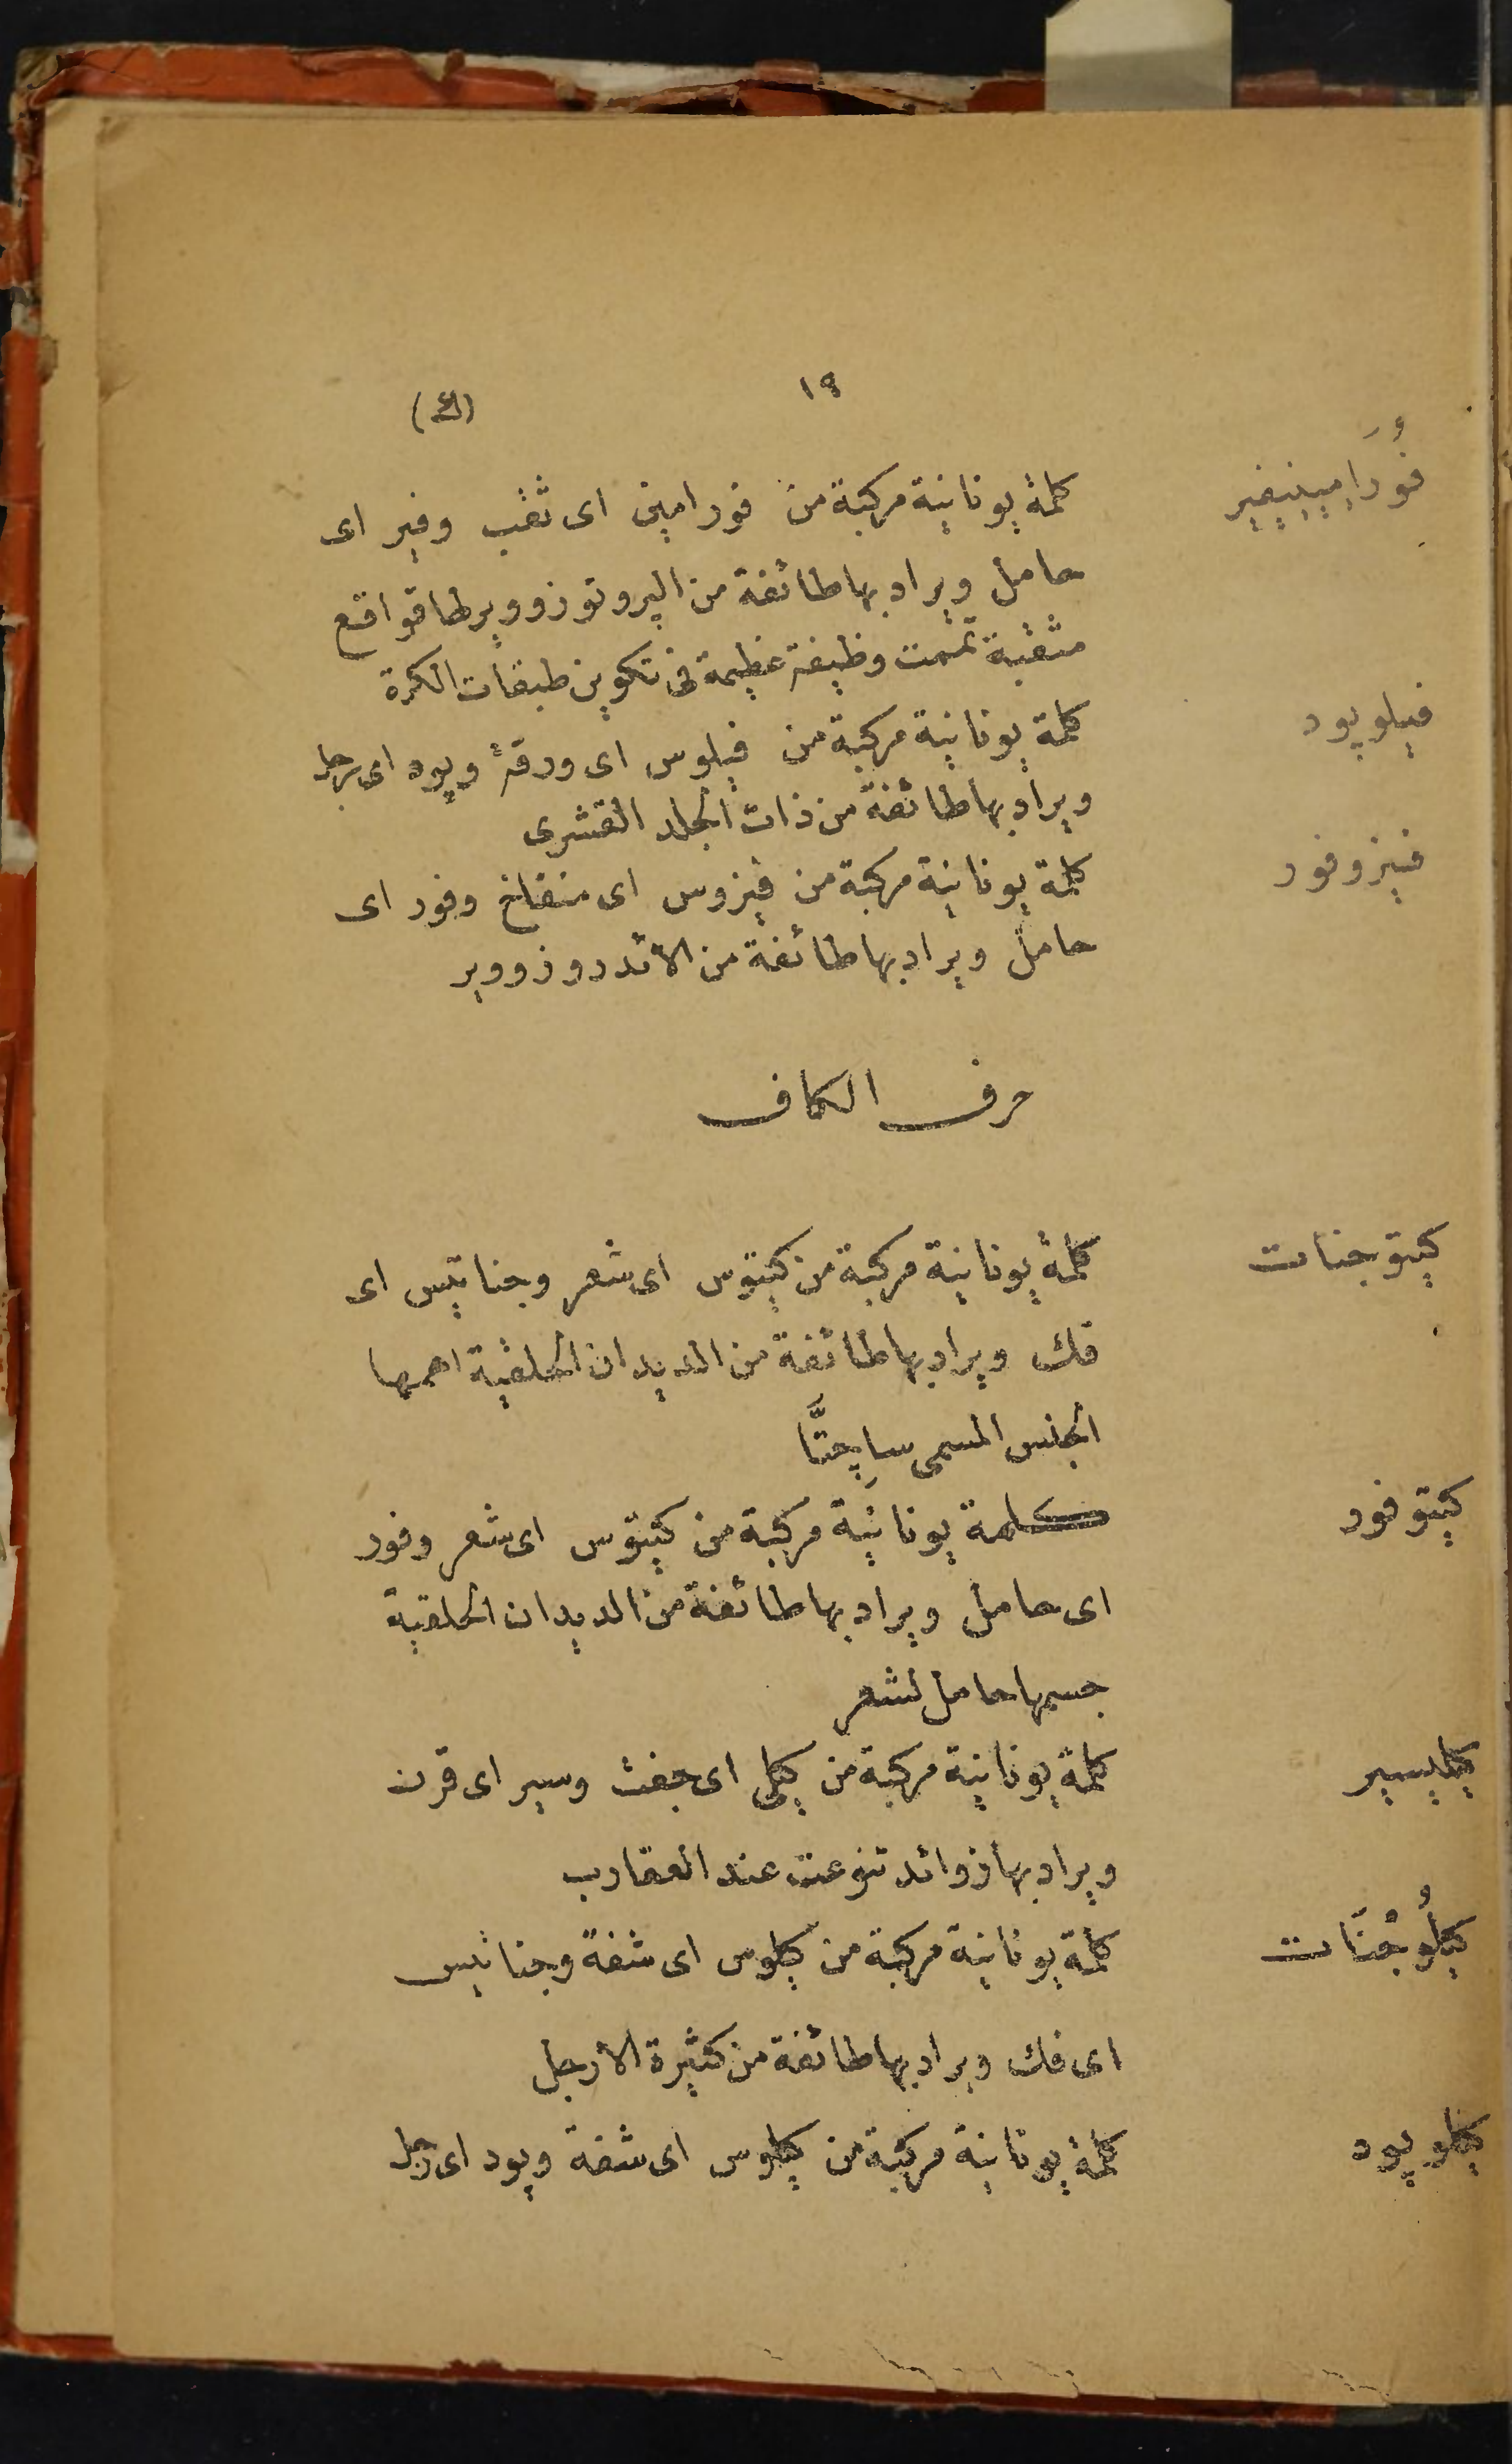 ١٩
(ك)
فُورَامِينِيفِير
كلمة يونانية مركبة من فورامين اى ثقب وفير اى
حامل ويراد بها طائفة من الپروتوزووير لها قواقع
مثقبة تممت وظيفة عظيمة فى تكوين طبقات الكرة
فيلوپود
كلمة يونانية مركبة من فيلوس اى ورقة وپود اى رجل
ويراد بها طائفة من ذات الجلد القشرى
فيزوفور
كلمة يونانية مركبة من فيزوس اى منفاخ وفور اى
حامل ويراد بها طائفة من الايدروزووير
حرف الكاف
كيتوجنات
كلمة يونانية مركبة من كيتوس اى شعر وجناتيس اى
فك ويراد بها طائفة من الديدان الحلقية اهمها
الجنس المسمى ساچِتَّا
كيتوفور
كلمة يونانية مركبة من كيتوس اى شعر وفور
اى حامل ويراد بها طائفة من الديدان الحلقية
جسمها حامل لشعر
كيليسير
كلمة يونانية مركبة من كيلى اى جفت وسير اى قرن
ويراد بها زوائد تنوعت عند العقارب
كيلُوجْنَات
كلمة يونانية مركبة من كيلوس اى شفة وجناتيس
اى فك ويراد بها طائفة من كثيرة الأرجل
كيلوپود
كلمة يونانية مركبة من كيلوس اى شفة وپود اى رجل